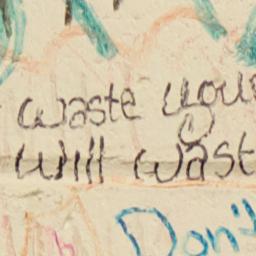 waste your
will wast
Don't